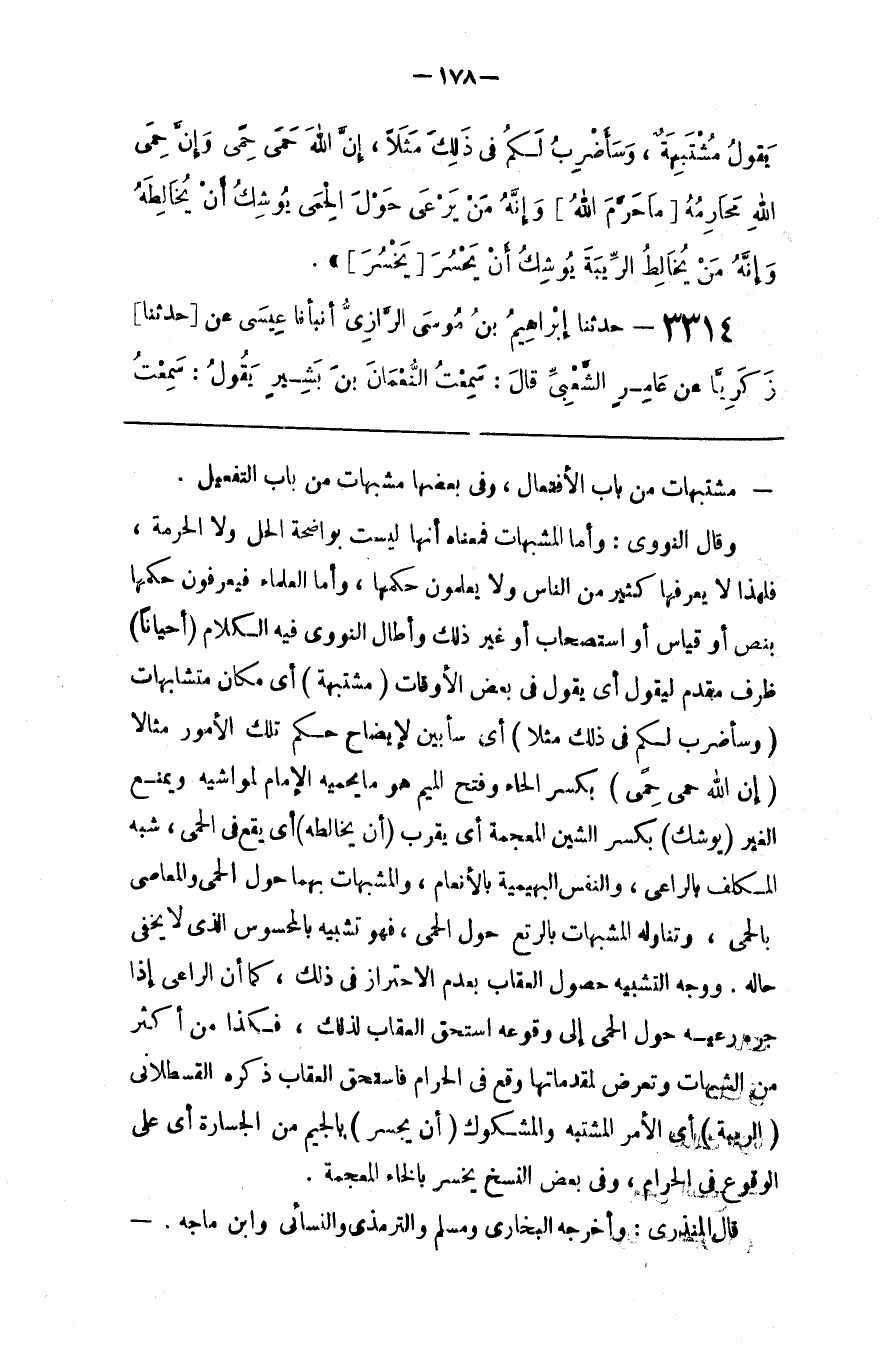 — ١٧٨ —
يَقولُ مُشْتَبِهَةٌ ، وَسَأَضْرِبُ لَكمُ فى ذَلِكَ مَثَلاً ، إنَّ اللهَ حَمَى حِمًى وَإنَّ حِمَى
اللهِ مَحَارِمُهُ [ مَاحَرَّمَ اللهُ ] وَإنَّهُ مَنْ يَرْعَى حَوْلَ الْحِمَى يُوشِكُ أَنْ يُخَالِطَهُ
وَإنَّهُ مَنْ يُخَالِطُ الرِّيبَةَ يُوشِكُ أَنْ يَجْسُرَ [ يَخْسُرَ ] » .
٣٣١٤ — حدثنا إبْرَاهِيمُ بنُ مُوسَى الرَّازِىُّ أنبأنا عِيسَى عن [حدثنا]
زَكَرِيَّا عن عَامِـرٍ الشَّعْبِىِّ قالَ : سَمِعْتُ النُّعْمَانَ بنَ بَشِـيرٍ يَقُولُ : سَمِعْتُ
— مشتبهات من باب الأفتعال ، وفى بعضها مشبهات من باب التفعيل .
وقال النووى : وأما المشبهات فمعناه أنها ليست بواضحة الحل ولا الحرمة ،
فلهذا لا يعرفها كثير من الناس ولا يعلمون حكمها ، وأما العلماء فيعرفون حكمها
بنص أو قياس أو استصحاب أو غير ذلك وأطال النووى فيه الكلام (أحياناً)
ظرف مقدم ليقول أى يقول فى بعض الأوقات ( مشتبهة ) أى مكان متشابهات
( وسأضرب لكم فى ذلك مثلا ) أى سأبين لإيضاح حكم تلك الأمور مثالا
( إن الله حمى حِمًى ) بكسر الحاء وفتح الميم هو مايحميه الإمام لمواشيه ويمنـع
الغير (يوشك) بكسر الشين المعجمة أى يقرب (أن يخالطه)أى يقع فى الحمى ، شبه
المكلف بالراعى ، والنفس البهيمية بالأنعام ، والمشبهات بهما حول الحمى والمعاصى
بالحمى ، وتناوله المشبهات بالرتع حول الحمى ، فهو تشبيه بالمحسوس الذى لا يخفى
حاله . ووجه التشبيه حصول العقاب بعدم الاحتراز فى ذلك ، كما أن الراعى إذا
جره رعيـه حول الحمى إلى وقوعه استحق العقاب لذلك ، فكذا من أكثر
من الشبهات وتعرض لمقدماتها وقع فى الحرام فاستحق العقاب ذكره القسطلانى
( الريبة ) أى الأمر المشتبه والمشكوك ( أن يجسر ) بالجيم من الجسارة أى على
الوقوع فى الحرام ، وفى بعض النسخ يخسر بالخاء المعجمة .
قال المنذرى : وأخرجه البخارى ومسلم والترمذى والنسائى وابن ماجه . —